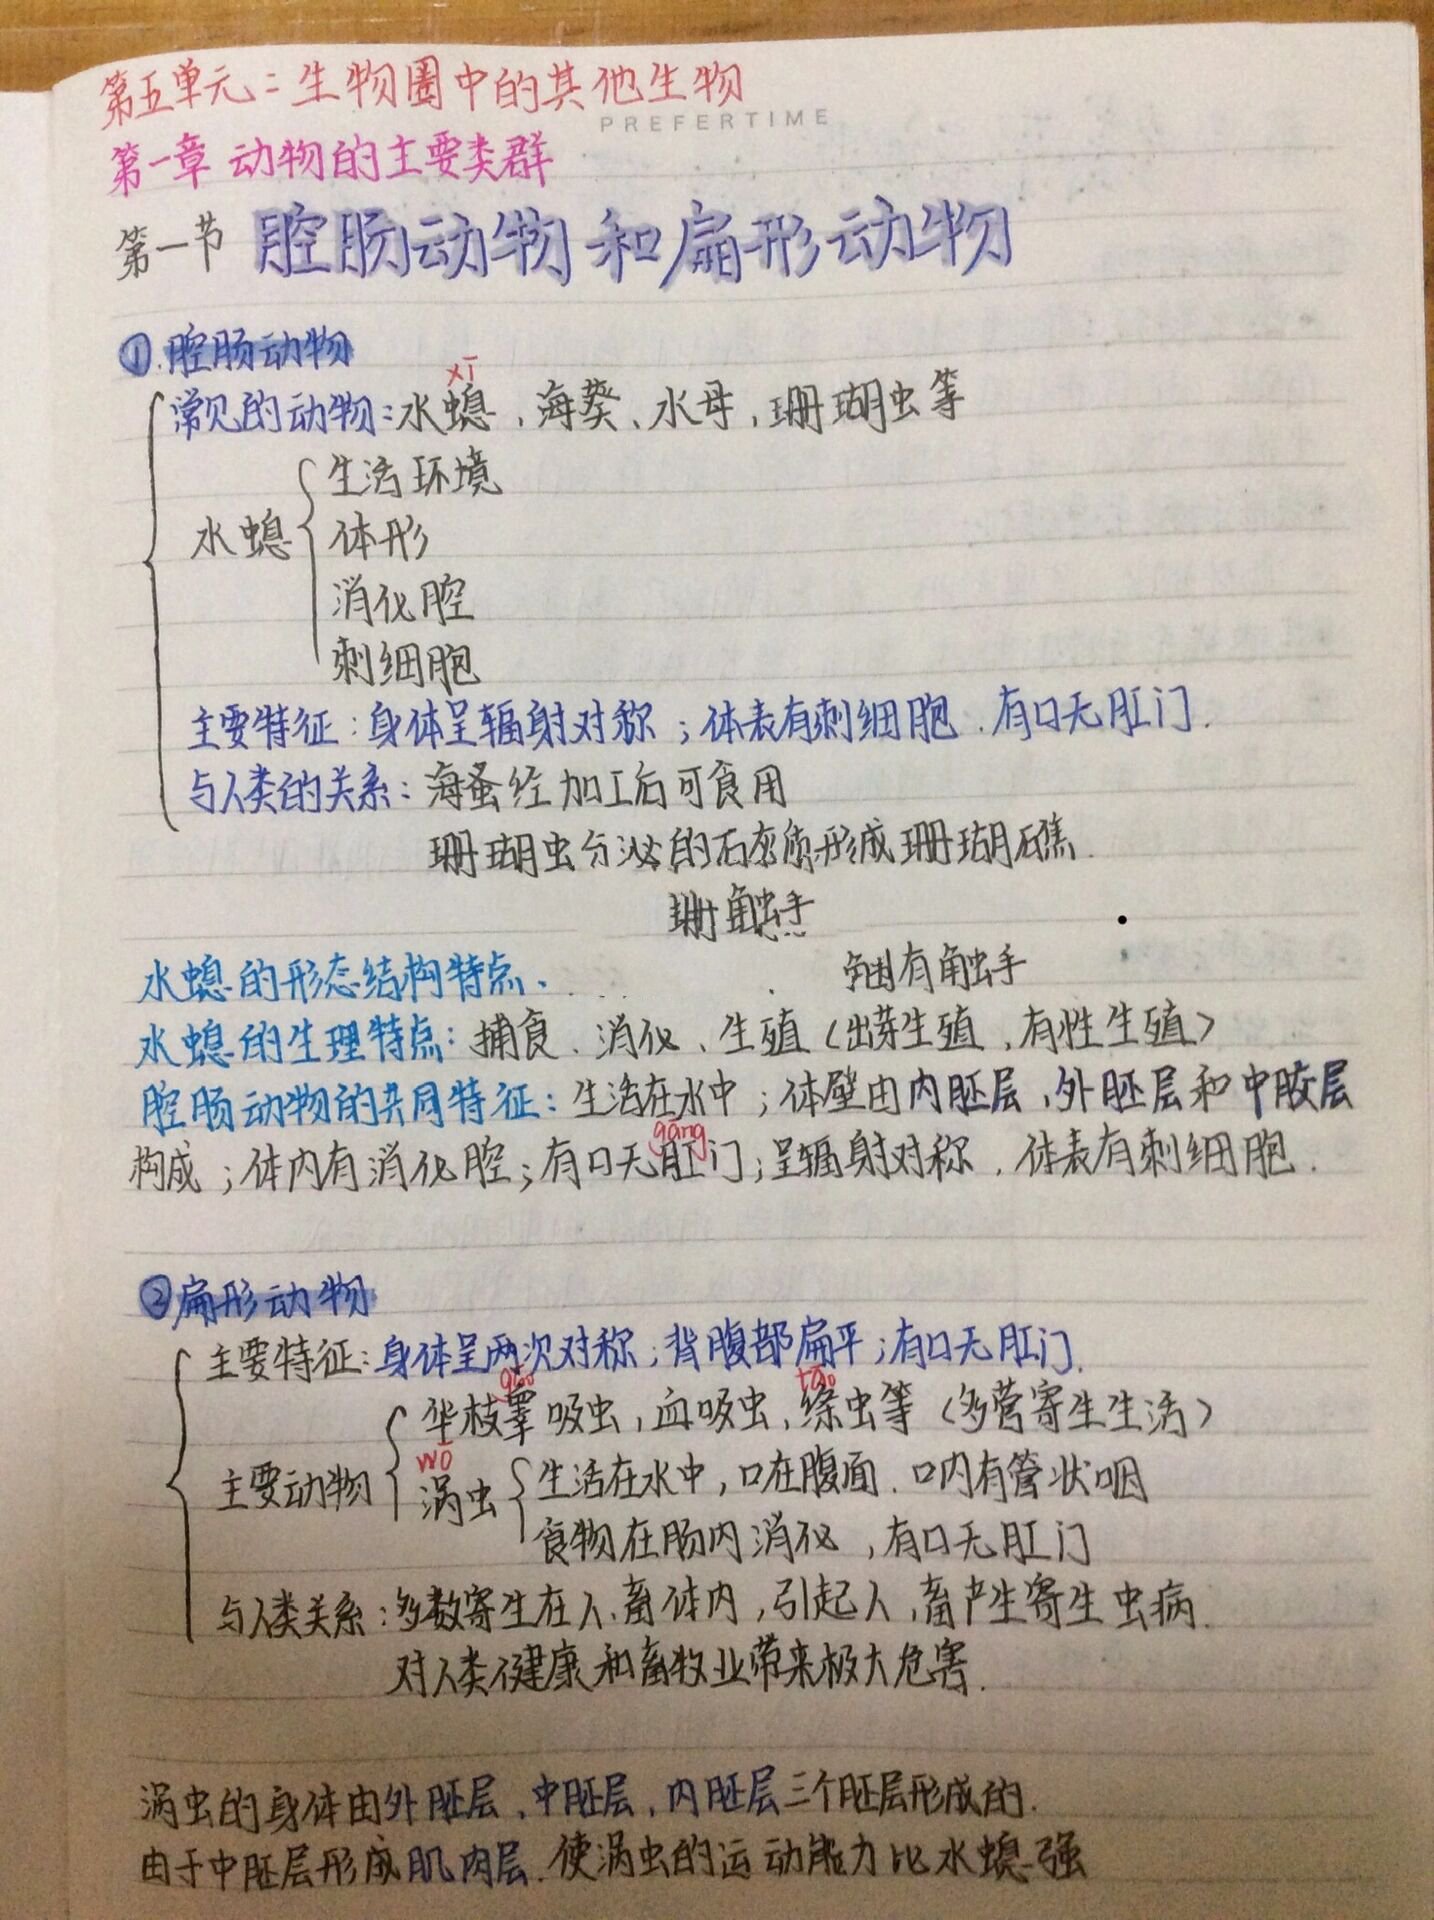 第五单元：生物圈中的其他生物
PREFERTIME
第一章 动物的主要类群
第一节 腔肠动物和扁形动物
①.腔肠动物
xī
常见的动物：水螅、海葵、水母、珊瑚虫等
生活环境
水螅 体形
消化腔
刺细胞
主要特征：身体呈辐射对称；体表有刺细胞．有口无肛门．
与人类的关系：海蜇经加工后可食用
珊瑚虫分泌的石灰质形成珊瑚礁．
触手
水螅的形态结构特点、
有触手
水螅的生理特点：捕食、消化、生殖（出芽生殖、有性生殖）
腔肠动物的共同特征：生活在水中；体壁由内胚层、外胚层和中胶层
gāng
构成；体内有消化腔；有口无肛门；呈辐射对称、体表有刺细胞．
②扁形动物
主要特征：身体呈两次对称；背腹部扁平；有口无肛门．
gāo tāo
华枝睾吸虫，血吸虫，绦虫等（多营寄生生活）
wō
主要动物 涡虫 生活在水中，口在腹面．口内有管状咽
食物在肠内消化，有口无肛门
与人类关系：多数寄生在人、畜体内，引起人，畜产生寄生虫病．
对人类健康和畜牧业带来极大危害．
涡虫的身体由外胚层、中胚层、内胚层三个胚层形成的．
由于中胚层形成肌肉层．使涡虫的运动能力比水螅强